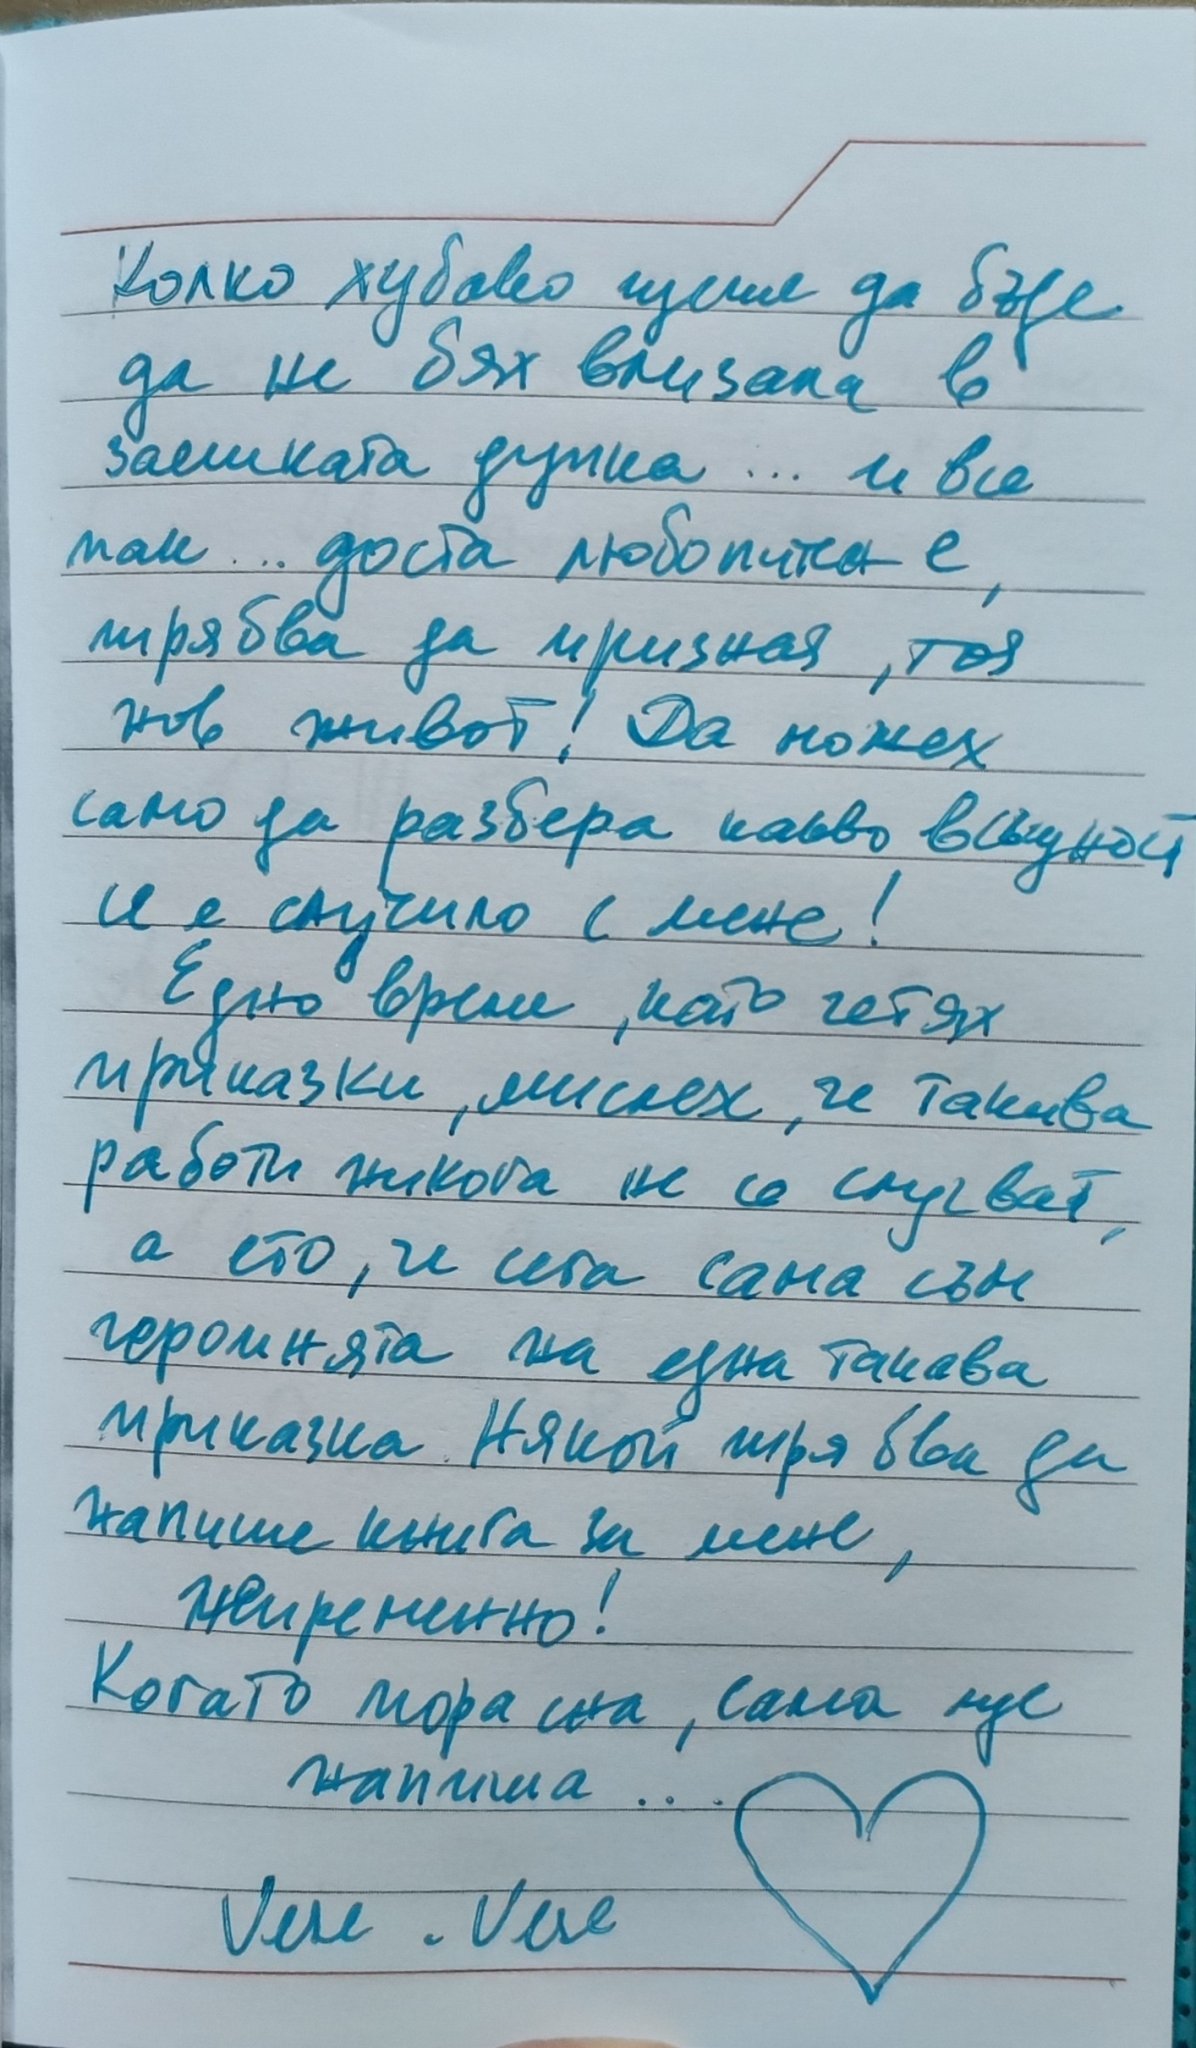 Колко хубаво щеше да бъде
да не бях влизала в
заешката дупка ... и все
пак ... доста любопитен е,
трябва да призная, тоя
нов живот! Да можех
само да разбера какво всъщност
и е случило с мене!
Едно време, като четях
приказки, мислех, че такива
работи никога не се случват,
а ето, че сега сама съм
героинята на една такава
приказка. Някой трябва да
напише книга за мене,
непременно!
Когато порасна, сама ще
напиша ....